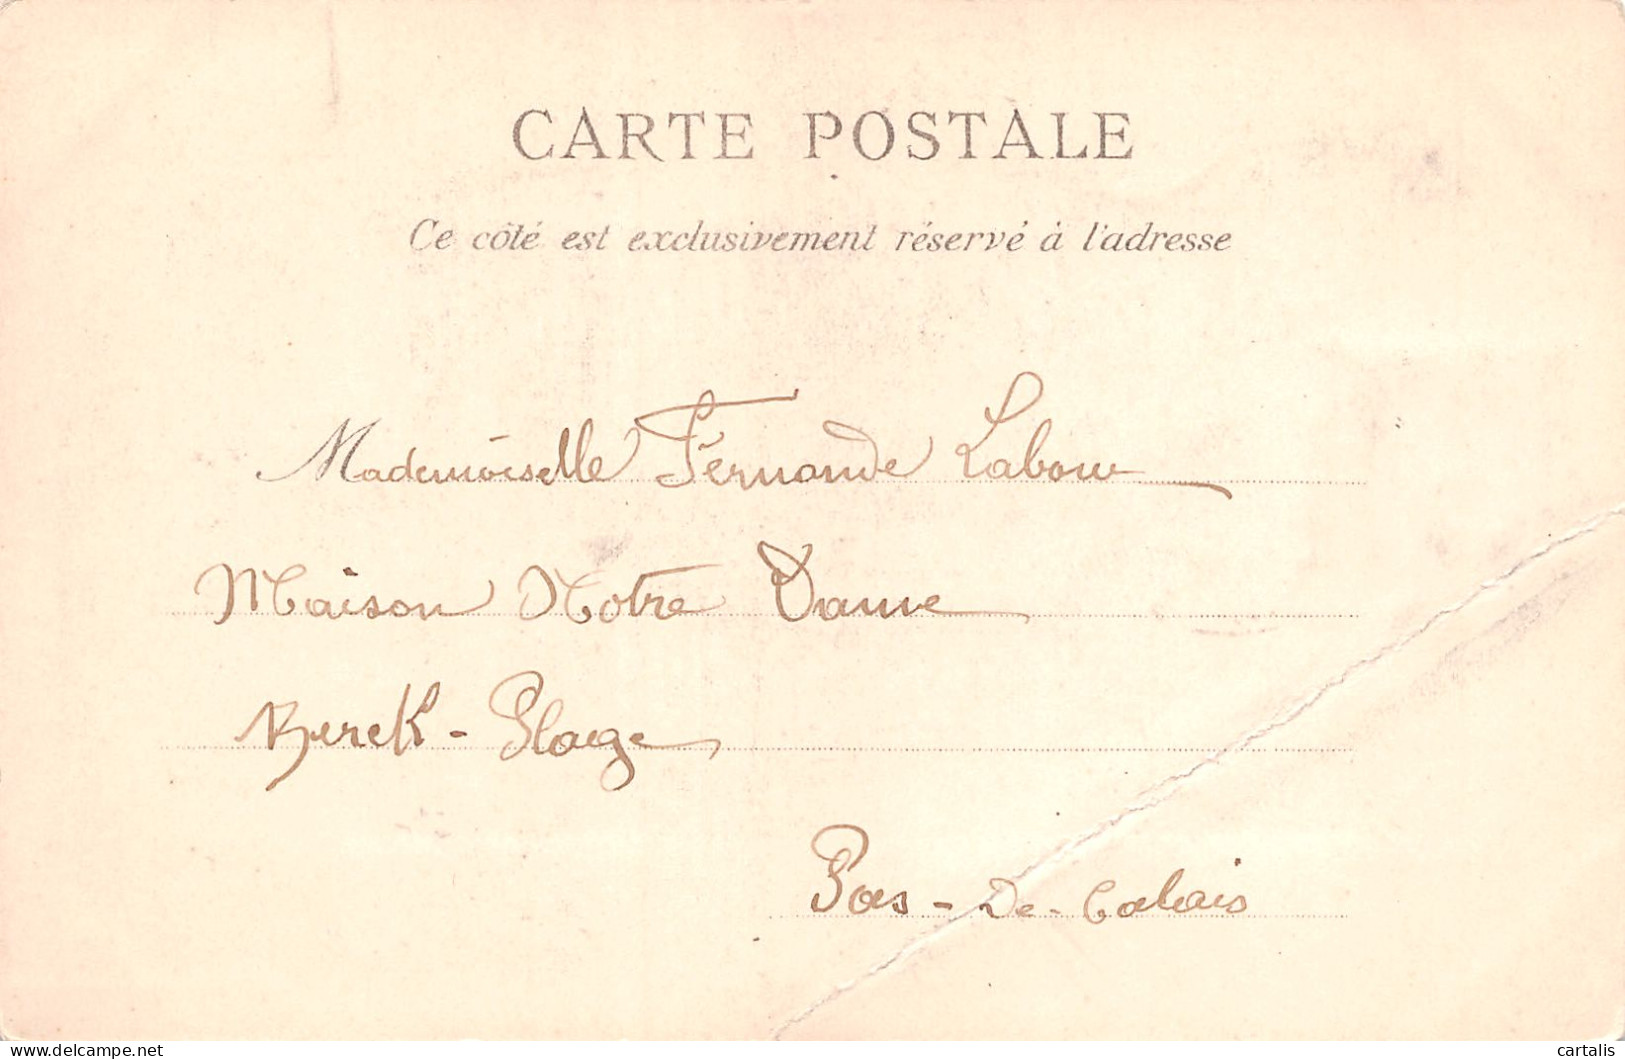 CARTE POSTALE
Ce côté est exclusivement réservé à l'adresse
Mademoiselle Fernande
Maison Notre Dame
Berck-Plage
Pas-De-Calais
www.delcampe.net
cartalis